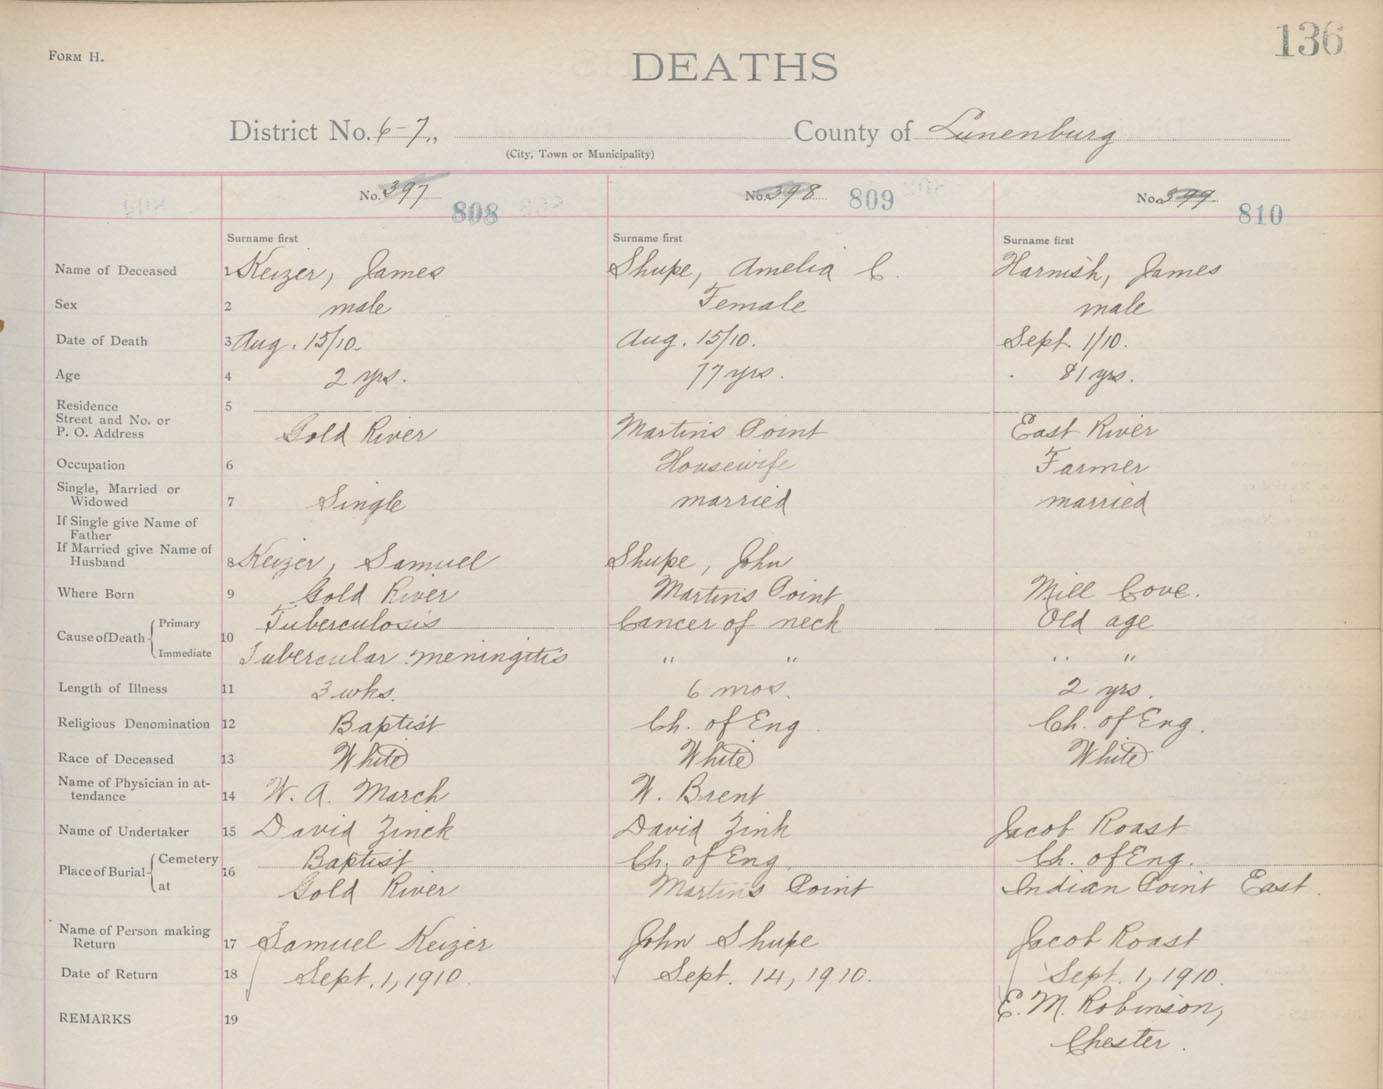 136
FORM H.
DEATHS
District No. 6-7, County of Lunenburg
(City, Town or Municipality)
No. 397 808 No. 398 809 No. 399 810
Surname first Surname first Surname first
Name of Deceased 1 Keizer, James Shupe, Amelia C. Harnish, James
Sex 2 male Female male
Date of Death 3 Aug. 15/10. Aug. 15/10. Sept. 1/10.
Age 4 2 yrs. 77 yrs. 81 yrs.
Residence 5
Street and No. or
P. O. Address Gold River Martins Point East River
Occupation 6 Housewife Farmer
Single, Married or
Widowed 7 Single married married
If Single give Name of
Father
If Married give Name of
Husband 8 Keizer, Samuel Shupe, John
Where Born 9 Gold River Martins Point Mill Cove.
Cause of Death 10 Primary Tuberculosis Cancer of neck Old age
Immediate Tubercular meningitis " " " "
Length of Illness 11 3 wks. 6 mos. 2 yrs.
Religious Denomination 12 Baptist Ch. of Eng. Ch. of Eng.
Race of Deceased 13 White White White
Name of Physician in at-
tendance 14 W. A. March W. Brent
Name of Undertaker 15 David Zinck David Zink Jacob Roast
Place of Burial 16 Cemetery Baptist Ch. of Eng. Ch. of Eng.
at Gold River Martins Point Indian Point East.
Name of Person making
Return 17 Samuel Keizer John Shupe Jacob Roast
Date of Return 18 Sept. 1, 1910 Sept. 14, 1910. Sept. 1, 1910.
REMARKS 19 E. M. Robinson,
Chester.